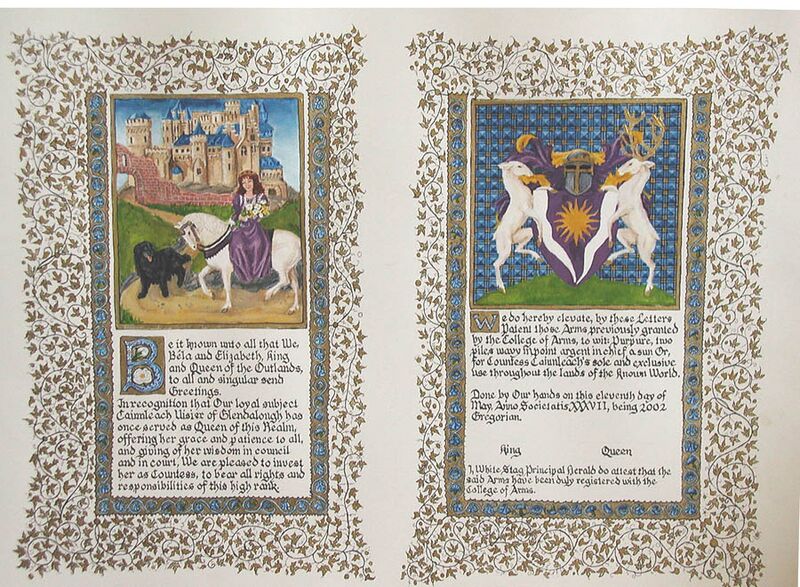 Be it known unto all that We,
Béla and Elizabeth, King
and Queen of the Outlands,
to all and singular send
Greetings.
In recognition that Our loyal subject
Caimleach Uisier of Glendalough has
once served as Queen of this Realm,
offering her grace and patience to all,
and giving of her wisdom in council
and in court, We are pleased to invest
her as Countess, to bear all rights and
responsibilities of this high rank.
We do hereby elevate, by these Letters
Patent those Arms previously granted
by the College of Arms, to wit: Purpure, two
piles wavy in point argent in chief a sun Or,
for Countess Caimleach's sole and exclusive
use throughout the lands of the Known World.
Done by Our hands on this eleventh day of
May, Anno Societatis, XXXVII, being 2002
Gregorian.
King Queen
I, White Stag Principal Herald do attest that the
said Arms have been duly registered with the
College of Arms.